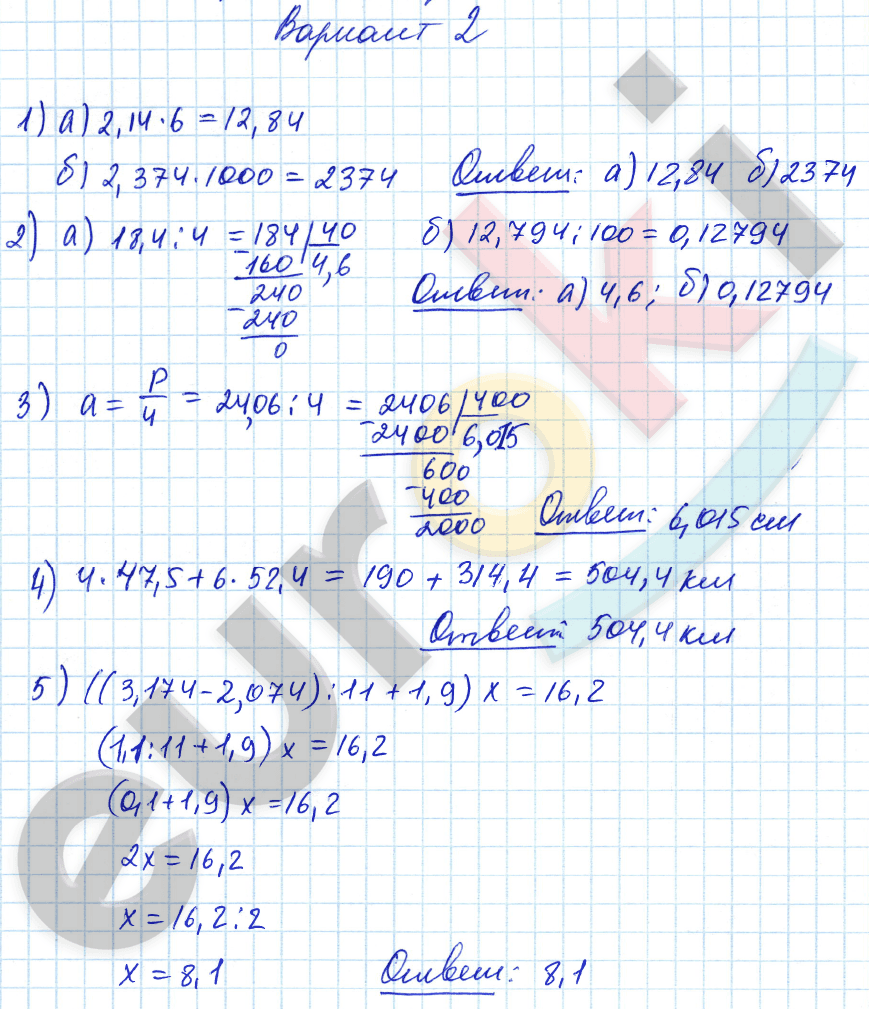 Вариант 2
1) а) 2,14·6 = 12,84
б) 2,374·1000 = 2374 Ответ: а) 12,84 б) 2374
2) а) 18,4:4 = 184 | 40 б) 12,794:100 = 0,12794
-160 4,6
240 Ответ: а) 4,6; б) 0,12794
-240
0
3) a = P/4 = 24,06:4 = 2406 | 400
-2400 6,015
600
-400
2000 Ответ: 6,015 см
4) 4·47,5+6·52,4 = 190 + 314,4 = 504,4 км
Ответ: 504,4 км
5) ((3,174-2,074):11+1,9) x = 16,2
(1,1:11+1,9) x = 16,2
(0,1+1,9) x = 16,2
2x = 16,2
x = 16,2:2
x = 8,1 Ответ: 8,1
euroki